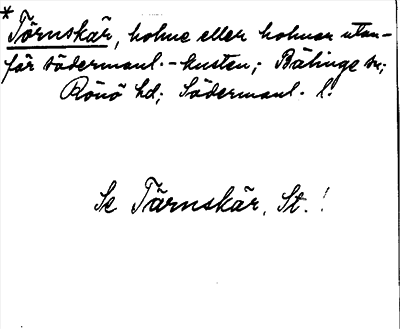 * Törnskär, holme eller holmar utan-
för södermanl.-kusten; Bälinge sn;
Rönö hd; Södermanl. l.
Se Tärnskär, St.!